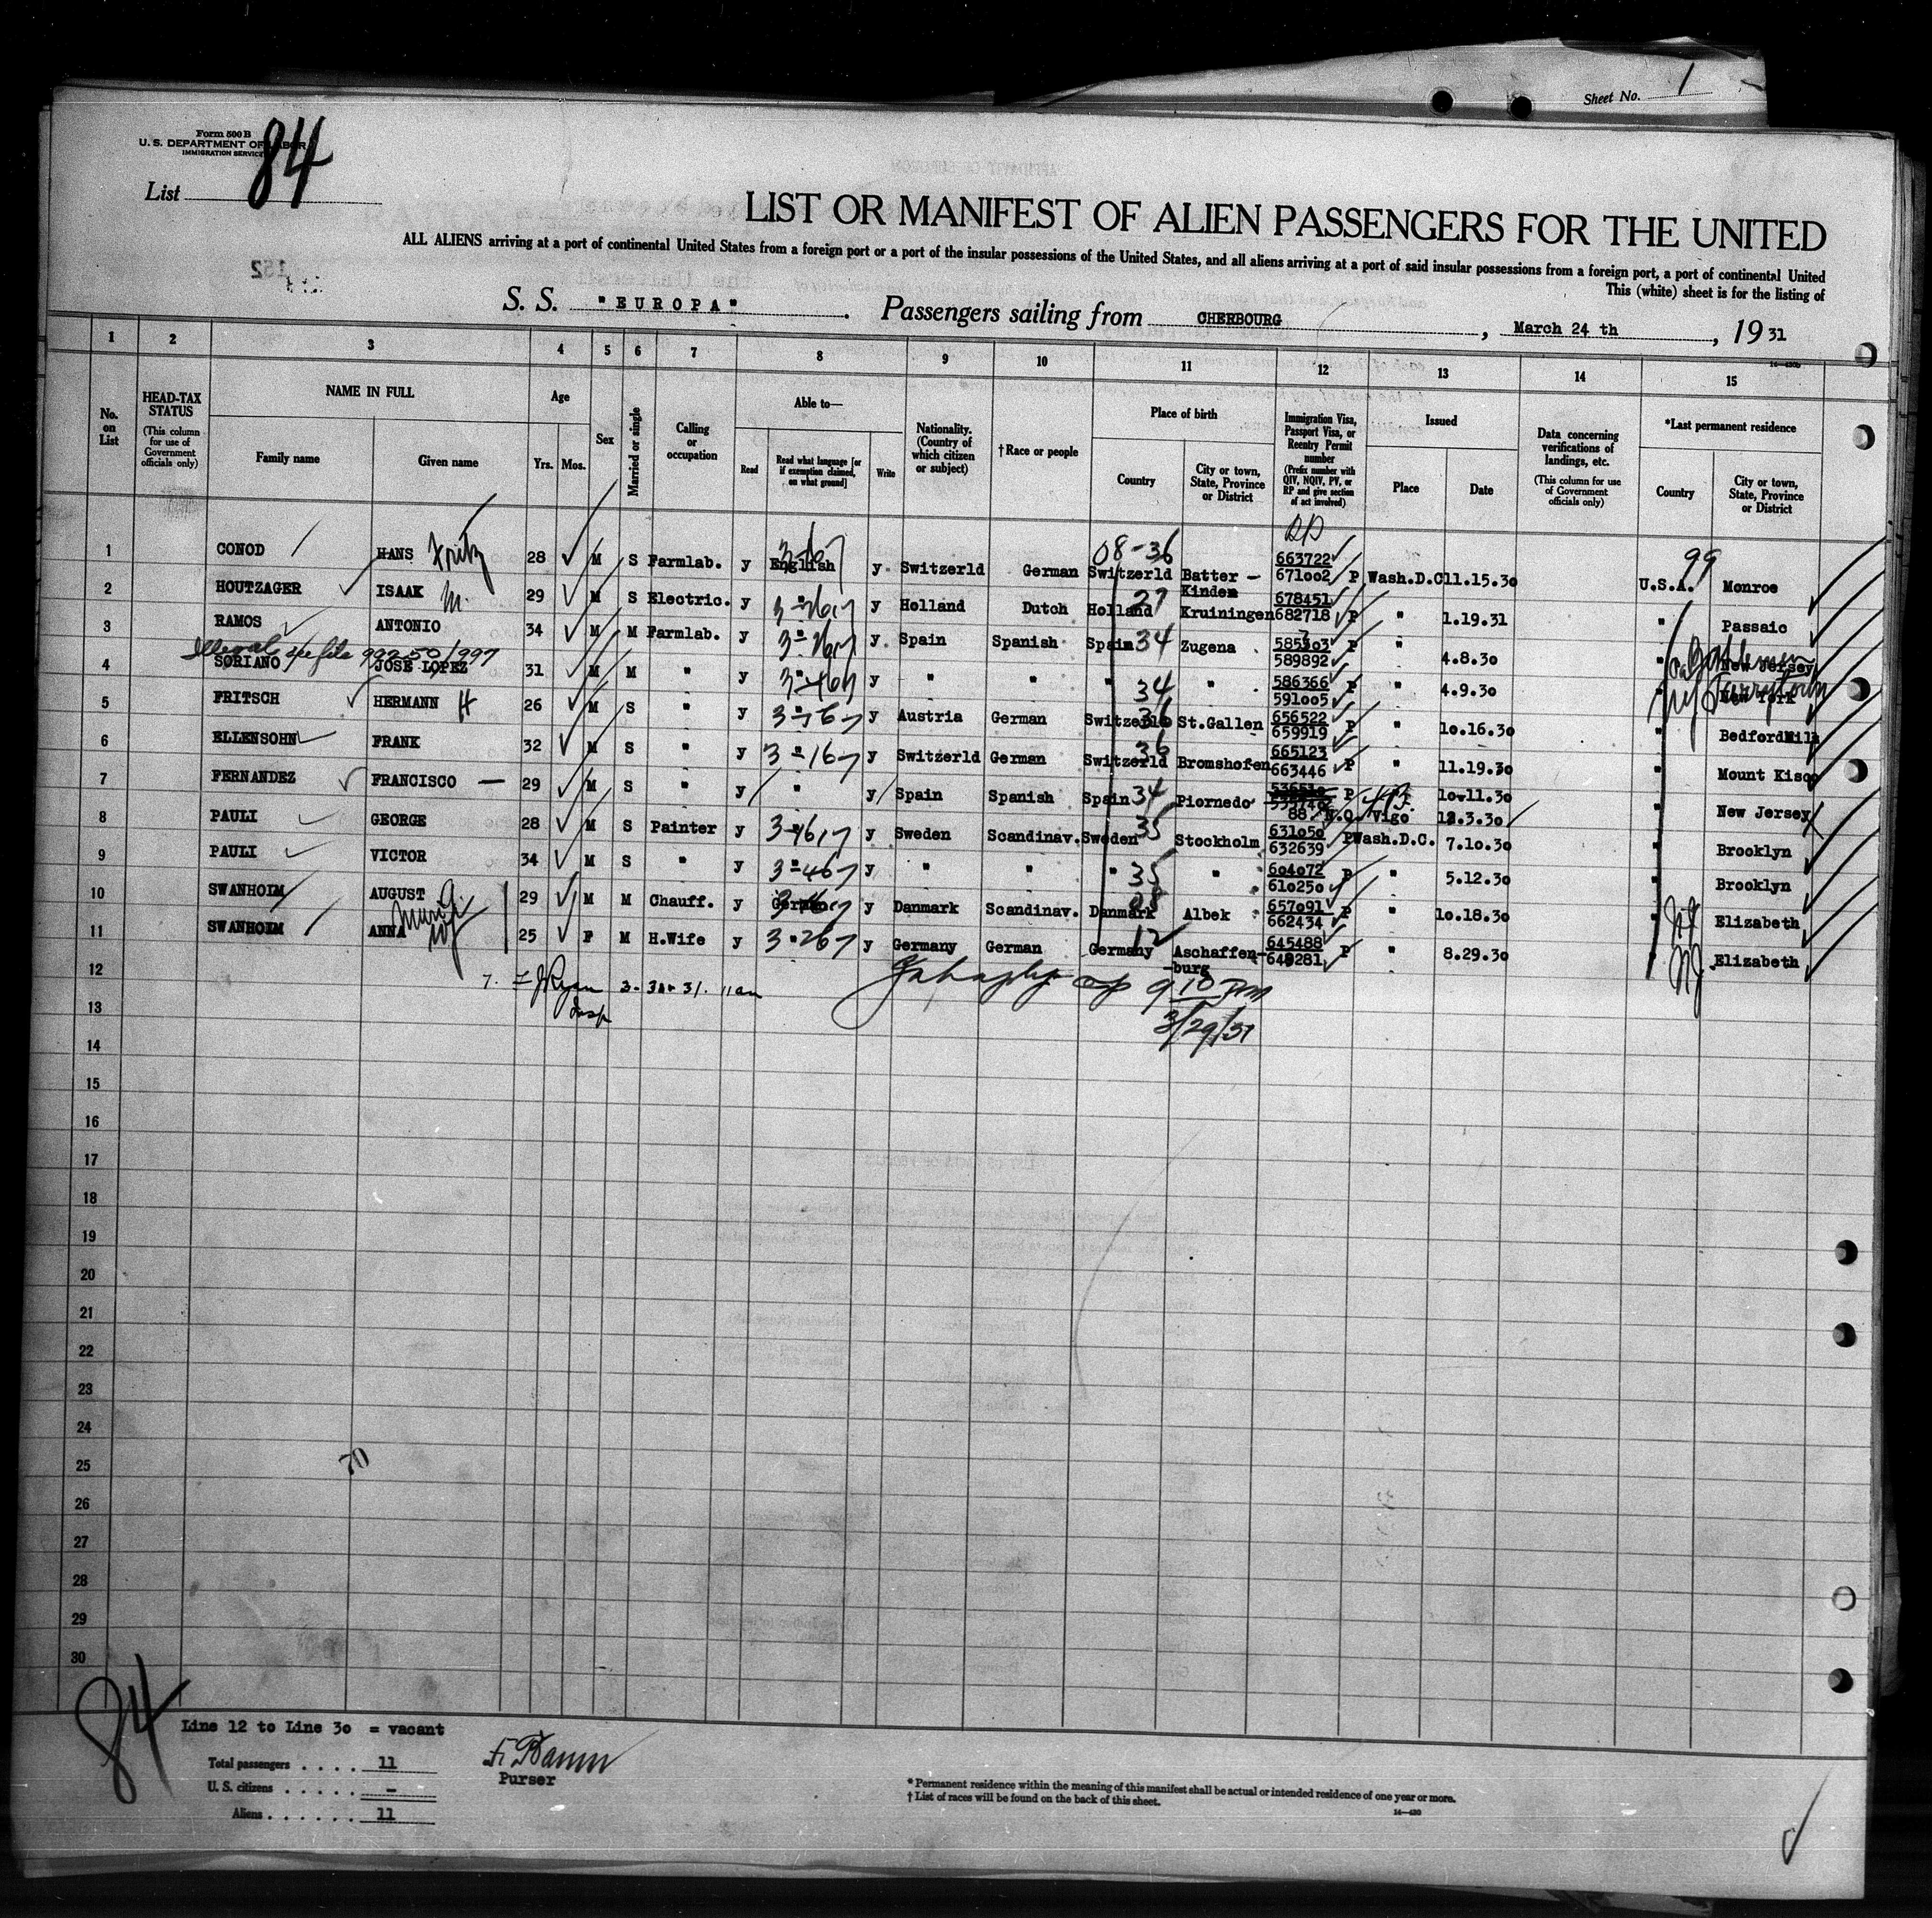 Sheet No. 1
Form 500 B
U. S. DEPARTMENT OF LABOR
IMMIGRATION SERVICE
List 84
LIST OR MANIFEST OF ALIEN PASSENGERS FOR THE UNITED
ALL ALIENS arriving at a port of continental United States from a foreign port or a port of the insular possessions of the United States, and all aliens arriving at a port of said insular possessions from a foreign port, a port of continental United
This (white) sheet is for the listing of
152
S. S. "EUROPA" . Passengers sailing from CHERBOURG , March 24 th , 19 31
1 2 3 4 5 6 7 8 9 10 11 12 13 14 15
No. on List
HEAD-TAX STATUS (This column for use of Government officials only)
NAME IN FULL Family name Given name
Age Yrs. Mos.
Sex
Married or single
Calling or occupation
Able to— Read Read what language [or if exemption claimed, on what ground] Write
Nationality. (Country of which citizen or subject)
†Race or people
Place of birth Country City or town, State, Province or District
Immigration Visa, Passport Visa, or Reentry Permit number (Prefix number with QIV, NQIV, PV, or RP and give section of act involved)
Issued Place Date
Data concerning verifications of landings, etc. (This column for use of Government officials only)
*Last permanent residence Country City or town, State, Province or District
1 CONOD HANS Fritz 28 M S Farmlab. y English y. Switzerld German Switzerld 08-36 Batter - Kinden 663722 671002 P Wash.D.C 11.15.30 U.S.A. 99 Monroe
2 HOUTZAGER ISAAK M. 29 M S Electric. y " y Holland Dutch Holland 27 Kruiningen 678451 682718 P " 1.19.31 " Passaic
3 RAMOS ANTONIO 34 M M Farmlab. y " y. Spain Spanish Spain 34 Zugena 585303 589892 P " 4.8.30 " New Jersey
Illegal see file 99250/997
4 SORIANO JOSE LOPEZ 31 M M " y " y " " " 34 " 586366 591005 P " 4.9.30 " New York
5 FRITSCH HERMANN H 26 M S " y " y Austria German Switzerld 36 St.Gallen 656522 659919 P " 10.16.30 " Bedford
6 ELLENSOHN FRANK 32 M S " y " y Switzerld German Switzerld 36 Bromshofen 665123 663446 P " 11.19.30 " Mount Kisco
7 FERNANDEZ FRANCISCO 29 M S " y " y Spain Spanish Spain 34 Piornedo P 10.11.30
88 N.Q. Vigo 12.3.30 " New Jersey
8 PAULI GEORGE 28 M S Painter y y Sweden Scandinav. Sweden 35 Stockholm 631050 632639 P Wash.D.C. 7.10.30 " Brooklyn
9 PAULI VICTOR 34 M S " y " y " " " 35 " 604072 610250 P " 5.12.30 " Brooklyn
10 SWANHOIM AUGUST G. 29 M M Chauff. y German y Danmark Scandinav. Danmark 08 Albek 657091 662434 P " 10.18.30 " Elizabeth NJ
11 SWANHOIM ANNA 25 F M H.Wife y " y Germany German Germany 12 Aschaffen- -burg 645488 P " 8.29.30 " Elizabeth NJ
12
Ryan Insp 3-30-31. 11am
9 10 PM
3/29/31
13
14
15
16
17
18
19
20
21
22
23
24
25
26
27
28
29
30
70
84
Line 12 to Line 30 = vacant
Total passengers . . . . 11
U. S. citizens . . . . . -
Aliens . . . . . . 11
Purser
* Permanent residence within the meaning of this manifest shall be actual or intended residence of one year or more.
† List of races will be found on the back of this sheet.
14—430